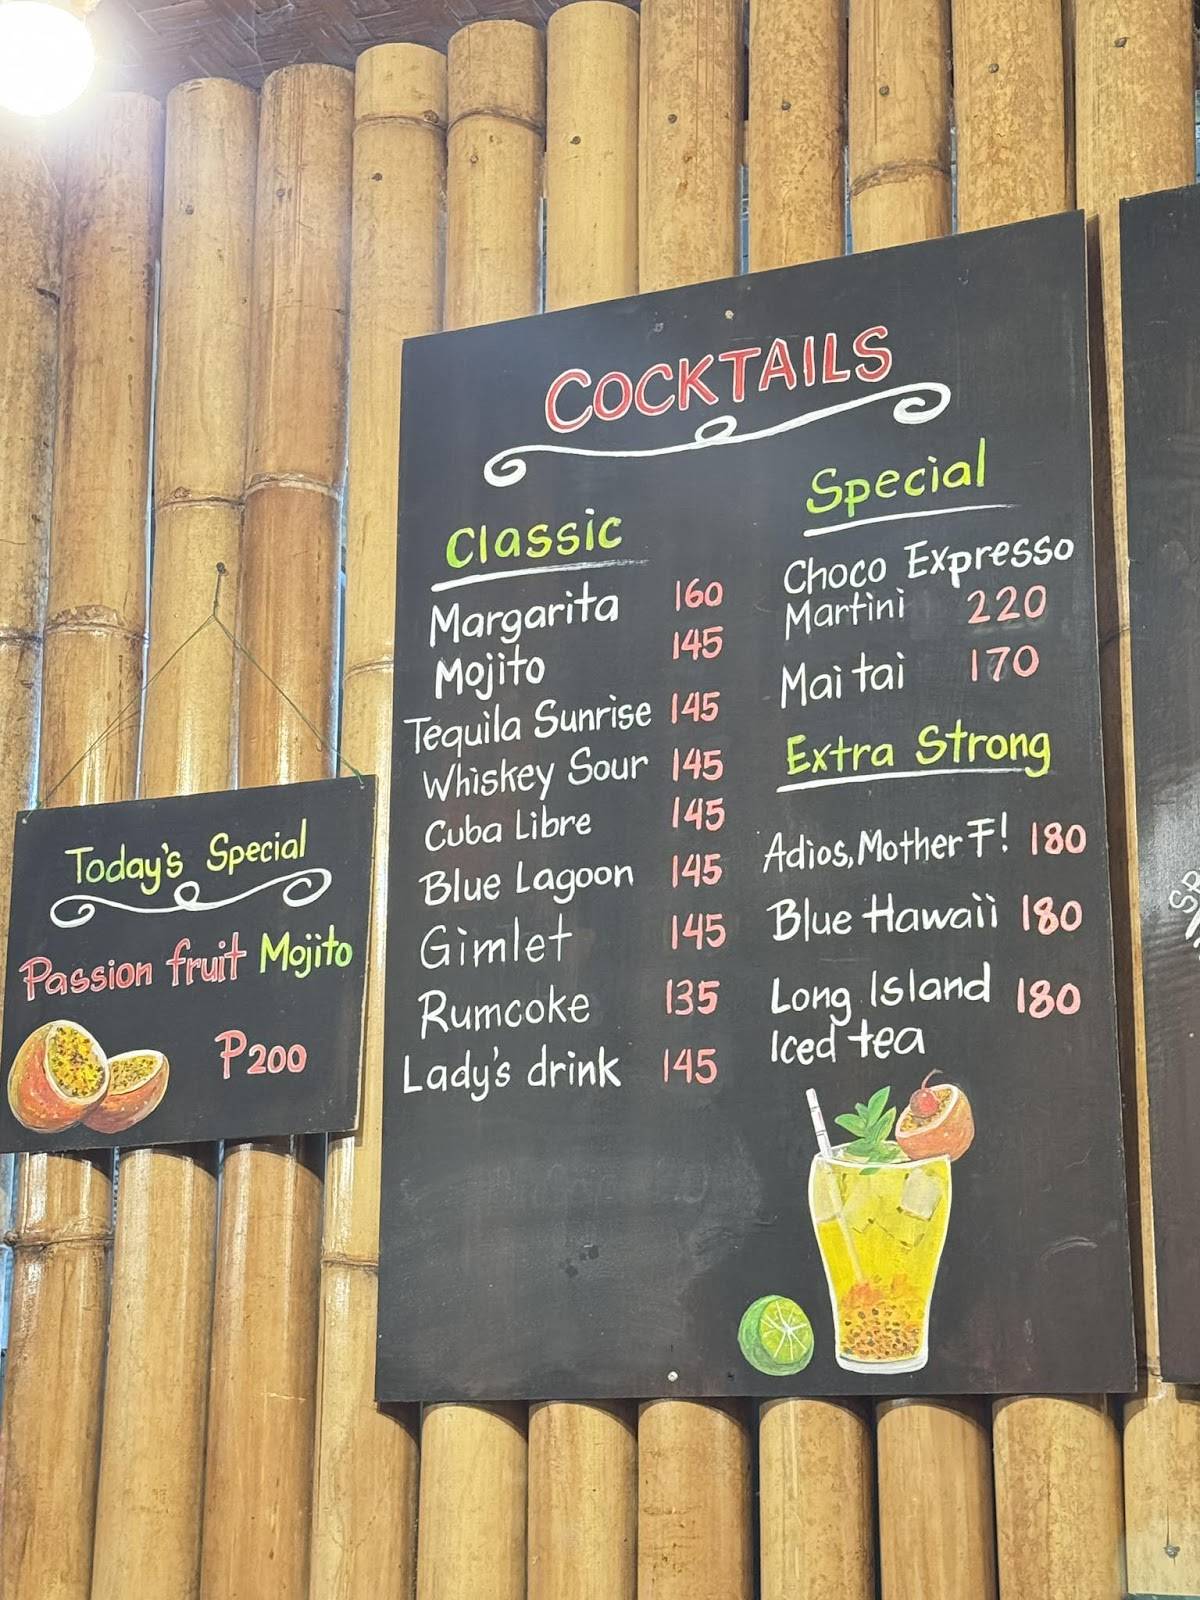 Today's Special
Passion fruit Mojito
₱200
COCKTAILS
Classic
Margarita 160
Mojito 145
Tequila Sunrise 145
Whiskey Sour 145
Cuba Libre 145
Blue Lagoon 145
Gimlet 145
Rumcoke 135
Lady's drink 145
Special
Choco Expresso
Martini 220
Mai tai 170
Extra Strong
Adios, Mother F! 180
Blue Hawaii 180
Long Island 180
Iced tea